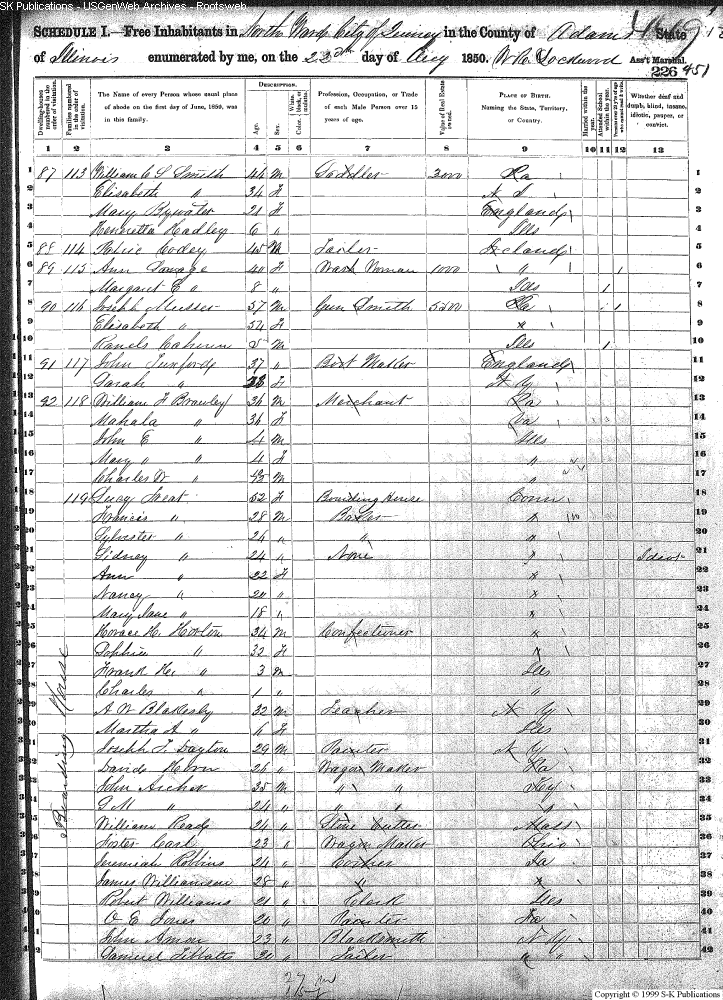 SK Publications - USGenWeb Archives - Rootsweb
SCHEDULE I.—Free Inhabitants in North Ward City of Quincy in the County of Adams State
of Illinois enumerated by me, on the 23rd day of Aug 1850. Lockwood Ass't Marshal.
226 451
Dwelling-houses numbered in the order of visitation.
Families numbered in the order of visitation.
The Name of every Person whose usual place of abode on the first day of June, 1850, was in this family.
DESCRIPTION.
Age.
Sex.
White, black, or mulatto. Color
Profession, Occupation, or Trade of each Male Person over 15 years of age.
Value of Real Estate owned.
PLACE OF BIRTH. Naming the State, Territory, or Country.
Married within the year.
Attended School within the year.
Whether deaf and dumb, blind, insane, idiotic, pauper, or convict.
1 2 3 4 5 6 7 8 9 10 11 12 13
1 87 113 William C S Smith 44 M Saddler 3000 Pa 1
2 Elisabeth " 34 F 2
3 Mary Bywater 21 F England 3
4 Henrietta Hadley 6 " Ills 4
5 88 114 Codey 45 M Tailor Ireland 5
6 89 115 Ann Savage 40 F Wash Woman 1000 " 1 6
7 Margaret C " 8 " Ills 1 7
8 90 116 Joseph Musser 57 M Gun Smith 5500 Pa 1 8
9 Elisabeth " 54 F " 9
10 5 M Ills 1 10
11 91 117 John Tunford 37 " Boot Maker England 11
12 Sarah " F N Y 12
13 92 118 William F Brawley 36 M Merchant Pa 13
14 Mahala " 36 F Va 14
15 John E " 4 M Ills 15
16 Mary " " 4 F " 16
17 Charles W " M " 17
18 119 Lucy Treat 52 F Boarding House Conn 18
19 Francis " 28 M Baker " 19
20 Sylvester " 26 " " " 20
21 Sidney " 24 " None " Idiot 21
22 Ann " 22 F " 22
23 Nancy " 20 " " 23
24 Mary Jane " 18 " " 24
25 Horace H. Horton 34 M Confectioner " 25
26 Sophia " 32 F " 26
27 Frank H. " 3 M Ills 27
28 Charles " 1 " " 28
29 A W Blakesby 32 M Teacher N Y 29
30 Martha A " 4 F Ills 30
31 Joseph T. Dayton 29 M Painter N Y 31
32 David Heron 26 " Wagon Maker Pa 32
33 John Archer 35 M " " Ky 33
34 G M " 24 " " " " 34
35 William Ready 24 " Stone Cutter Mass 35
36 Foster Carl 23 " Wagon Maker Ohio 36
37 Jeremiah Robbins 24 " Cooper Pa 37
38 James Williamson 28 " " " 38
39 Robert Williams 21 " Clerk Ills 39
40 O E Jones 20 " Painter Pa 40
41 John Amon 23 " Blacksmith N Y 41
42 Samuel Tibbatts " Tailor " " 42
Boarding House
Copyright © 1999 S-K Publications